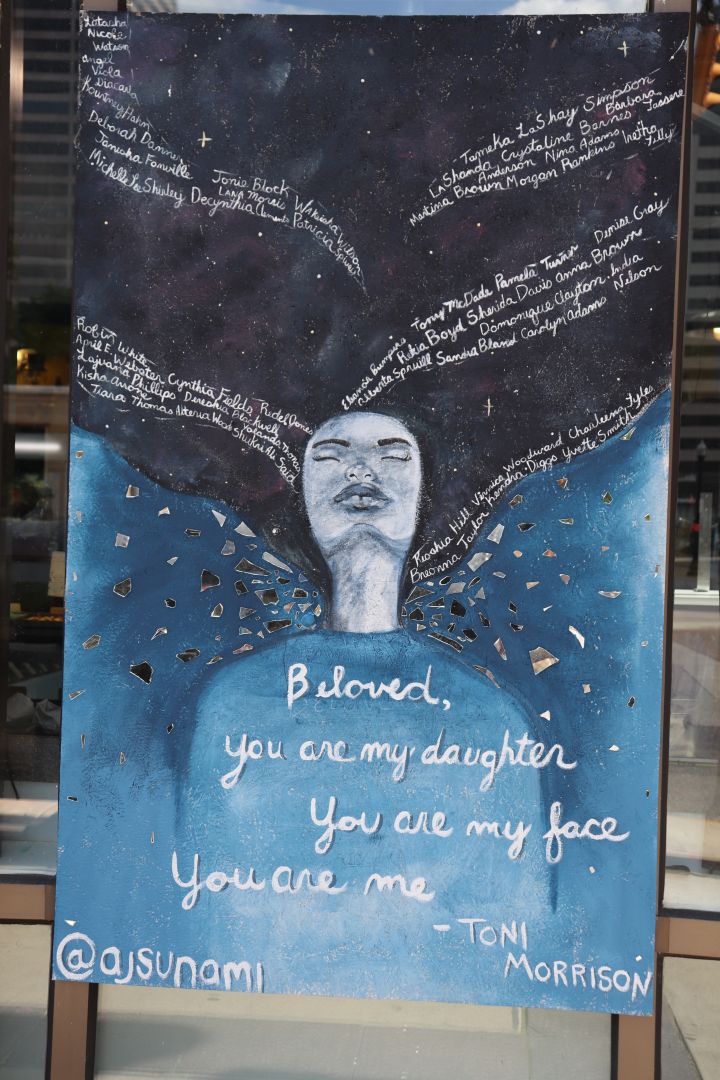 Latasha
Nicole
Watson
angel
Viola
Kourtney Hahn
Deborah Danner
Janisha Fonville
Michelle Lee Shirley Decynthia Clements Patricia Spivey
Jonie Block Wakiesha Wilson
LANA Morris
Tameka LaShay Simpson
LaShanda Crystaline Barnes Barbara
Anderson Nina Adams Inetha
Martina Brown Morgan Rankins Tilly
Tony McDade Pamela Turner Denise Gay
Eleanor Bumpurs Rekia Boyd Sherida Davis anna Brown
Domonique Clayton India
Alberta Spruill Sandra Bland Carolyn Adams Nelson
Robin White
April E. Webster Cynthia Fields Tridel Jones
Lajuana Phillips Dereshia Blackwell
Kisha arrone Yolanda Thomas
Tiara Thomas Alteria Woods Shukri Ali Said
Keoshia Hill Vernicia Woodward Charleena Lyles
Breonna Taylor Kendra Diggs Yvette Smith
Beloved,
You are my daughter
You are my face
You are me
- TONI
MORRISON
@ajsunami